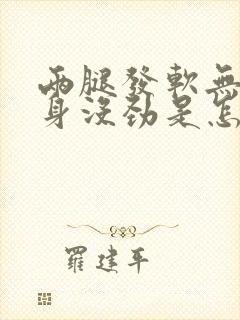 兩腿發軟無
身沒勁是怎
羅建平